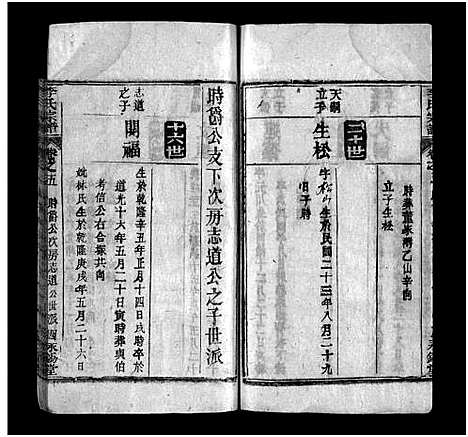 時葬蓮
乙山辛向
立子生松
三十世
天嗣
立子
生松
字
生於民國二十三年八月二十九
時
時爵公支下次房志道公之子世派
十六世
志道
之子
開福
生於乾隆辛丑年正月十四日戌時卒於
道光十六年五月二十日寅時葬與伯
考信公右合塚共向
妣林氏生於乾隆庚戌年五月二十六日
李氏宗譜
卷之五
時爵公次房志道公世派